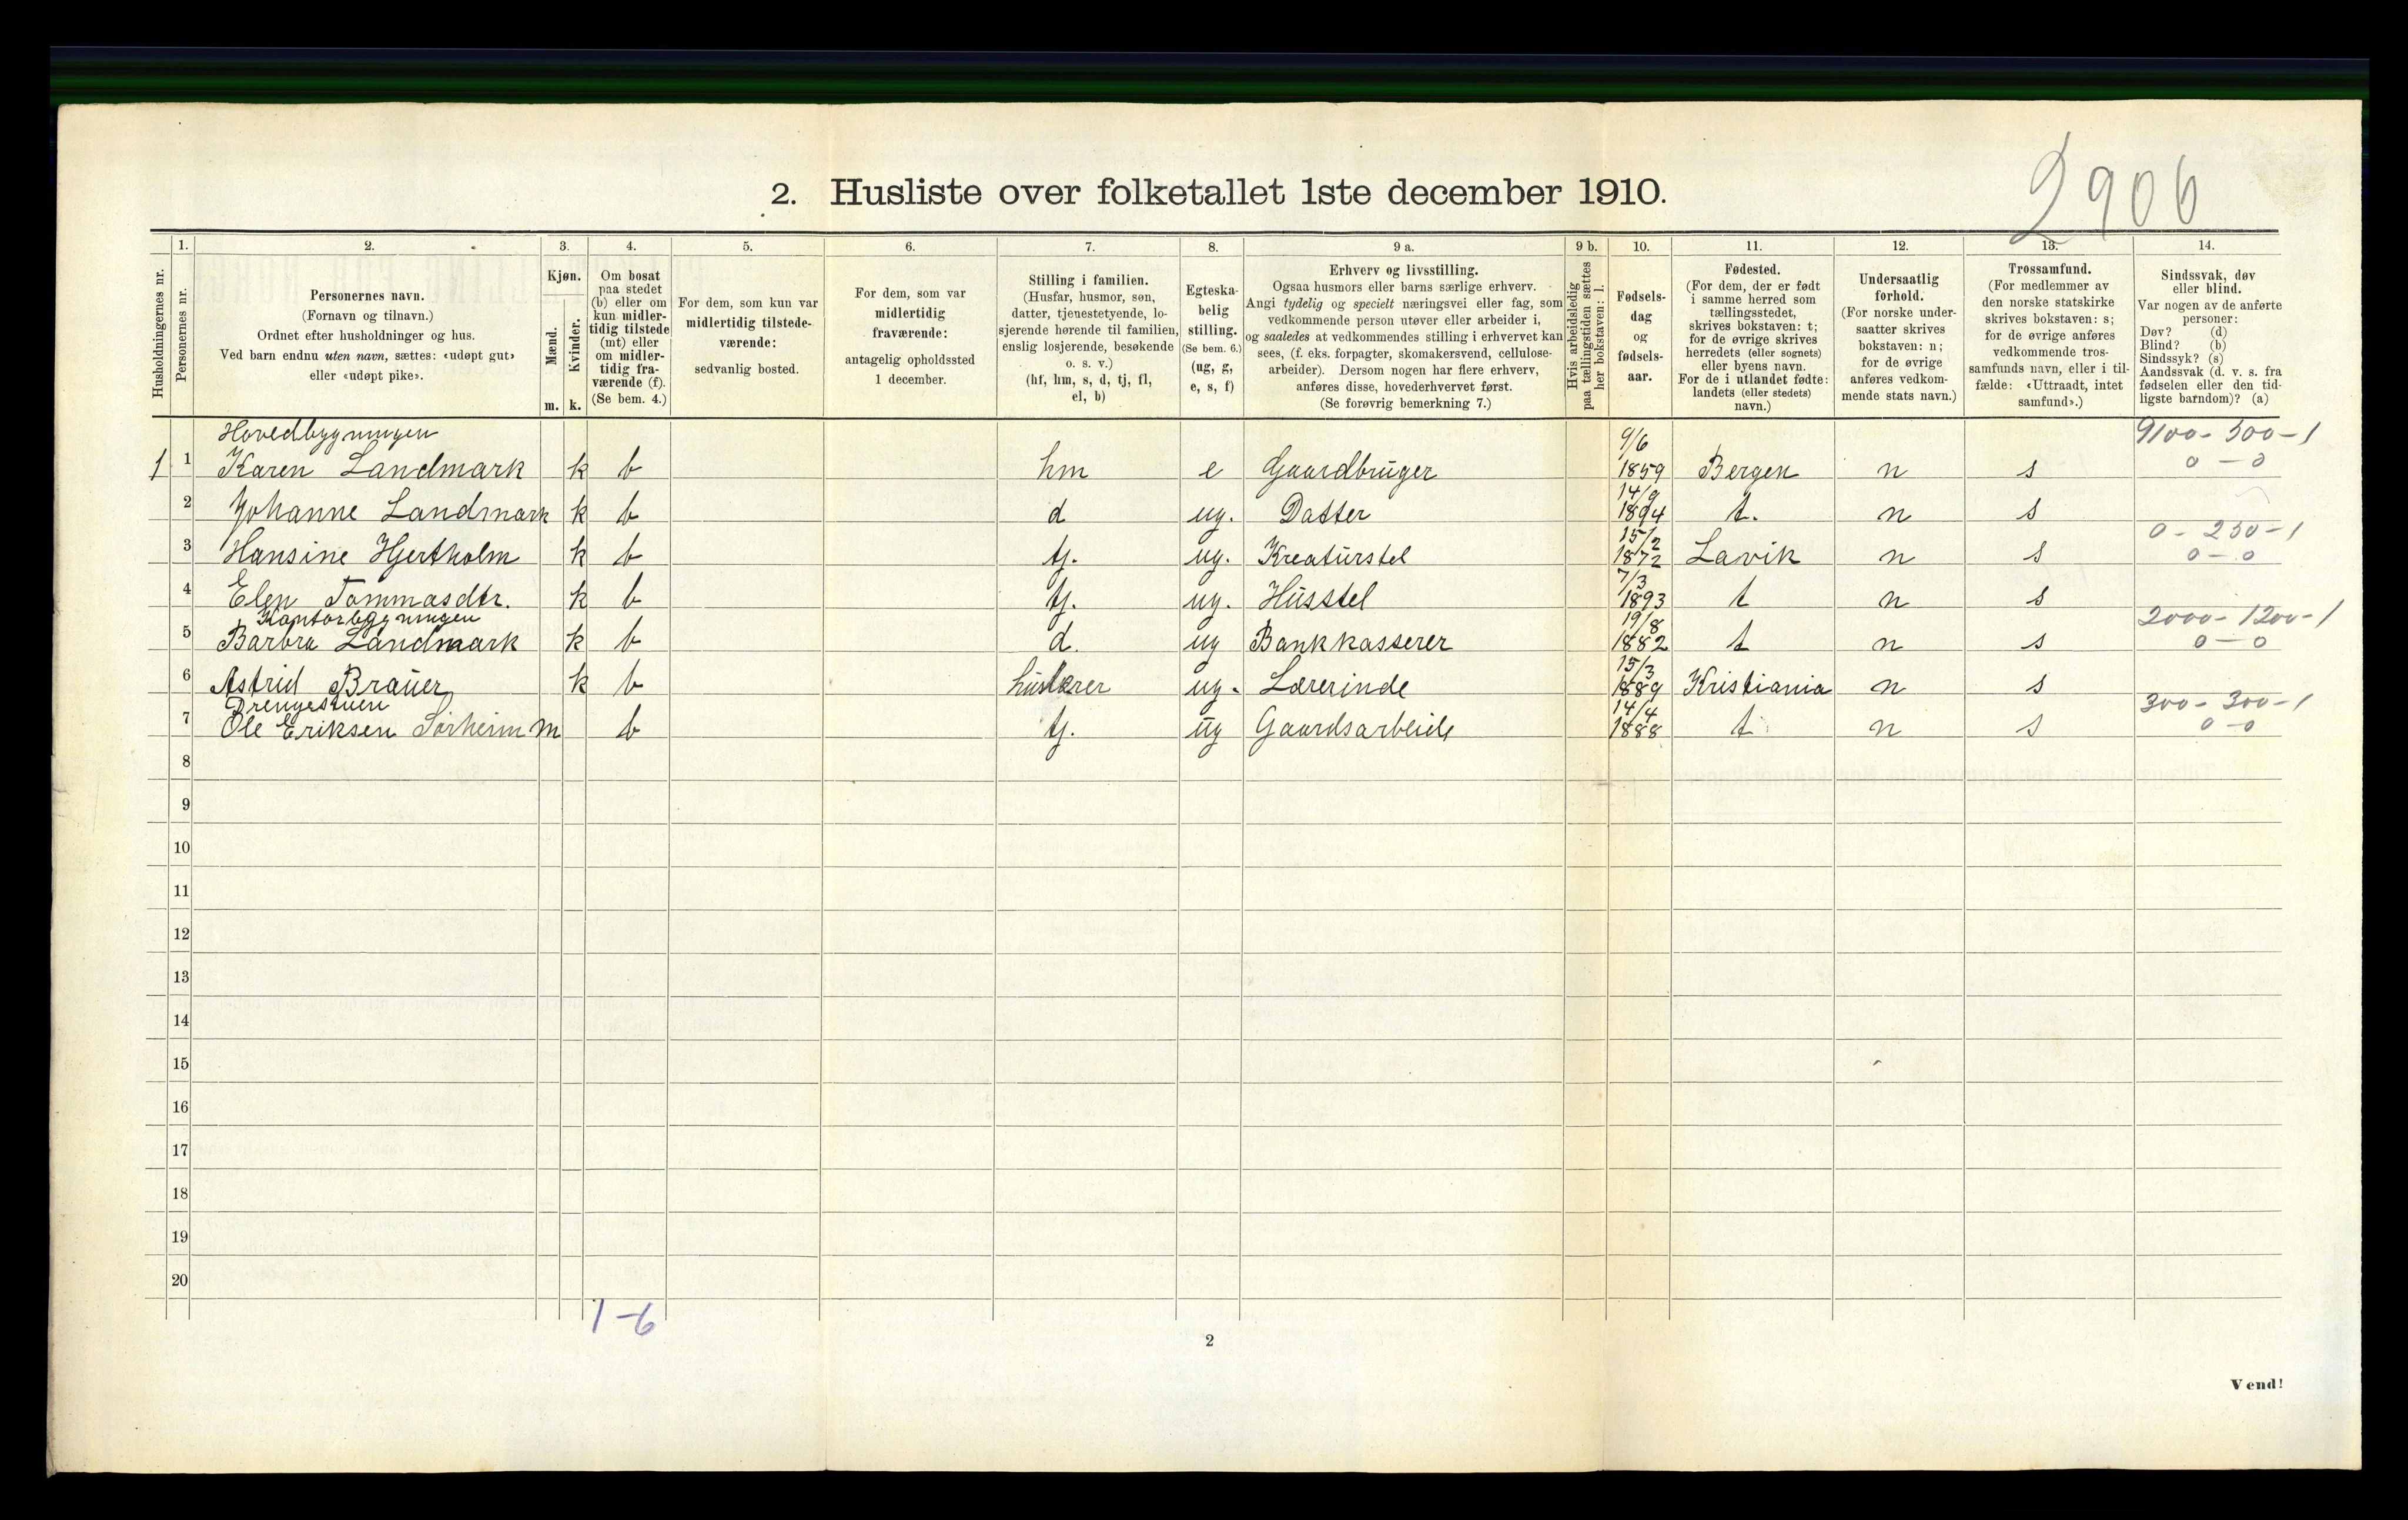 2906
2. Husliste over folketallet 1ste december 1910.
Husholdningernes nr.
1.
Personernes nr.
2.
Personernes navn.
(Fornavn og tilnavn.)
Ordnet efter husholdninger og hus.
Ved barn endnu uten navn, sættes: «udøpt gut»
eller «udøpt pike».
3.
Kjøn.
Mænd.
Kvinder.
m. k.
4.
Om bosat
paa stedet
(b) eller om
kun midler-
tidig tilstede
(mt) eller
om midler-
tidig fra-
værende (f).
(Se bem. 4.)
5.
For dem, som kun var
midlertidig tilstede-
værende:
sedvanlig bosted.
6.
For dem, som var
midlertidig
fraværende:
antagelig opholdssted
1 december.
7.
Stilling i familien.
(Husfar, husmor, søn,
datter, tjenestetyende, lo-
sjerende hørende til familien,
enslig losjerende, besøkende
o. s. v.)
(hf, hm, s, d, tj, fl,
el, b)
8.
Egteska-
belig
stilling.
(Se bem. 6.)
(ug, g,
e, s, f)
9 a.
Erhverv og livsstilling.
Ogsaa husmors eller barns særlige erhverv.
Angi tydelig og specielt næringsvei eller fag, som
vedkommende person utøver eller arbeider i,
og saaledes at vedkommendes stilling i erhvervet kan
sees, (f. eks. forpagter, skomakersvend, cellulose-
arbeider). Dersom nogen har flere erhverv,
anføres disse, hovederhvervet først.
(Se forøvrig bemerkning 7.)
9 b.
Hvis arbeidsledig
paa tællingstiden sættes
her bokstaven: l.
10.
Fødsels-
dag
og
fødsels-
aar.
11.
Fødested.
(For dem, der er født
i samme herred som
tællingsstedet,
skrives bokstaven: t;
for de øvrige skrives
herredets (eller sognets)
eller byens navn.
For de i utlandet fødte:
landets (eller stedets)
navn.)
12.
Undersaatlig
forhold.
(For norske under-
saatter skrives
bokstaven: n;
for de øvrige
anføres vedkom-
mende stats navn.)
13.
Trossamfund.
(For medlemmer av
den norske statskirke
skrives bokstaven: s;
for de øvrige anføres
vedkommende tros-
samfunds navn, eller i til-
fælde: «Uttraadt, intet
samfund».)
14.
Sindssvak, døv
eller blind.
Var nogen av de anførte
personer:
Døv? (d)
Blind? (b)
Sindssyk? (s)
Aandssvak (d. v. s. fra
fødselen eller den tid-
ligste barndom)? (a)
Hovedbygningen 9/6 9100 - 500 - 1
1 1 Karen Landmark k b hm e Gaardbruger 1859 Bergen n s 0 - 0
2 Johanne Landmark k b d ug. Datter 14/9 1894 t. n s
3 Hansine Hjertholm k b tj. ug. Kreaturstel 15/2 1872 Lavik n s 0 - 250 - 1 0 - 0
4 Elen Tommasdtr. k b tj. ug. Husstel 7/3 1893 t n s
Kontorbygningen 19/8 2000 - 1200 - 1
5 Barbra Landmark k b d. ug Bankkasserer 1882 t n s 0 - 0
6 Astrid Brauer k b huslærer ug. Lærerinde 15/3 1889 Kristiania n s
Drengestuen 14/4 300 - 300 - 1
7 Ole Eriksen Sørheim m b tj. ug Gaardsarbeide 1888 t n s 0 - 0
8
9
10
11
12
13
14
15
16
17
18
19
20
1-6
2
Vend!